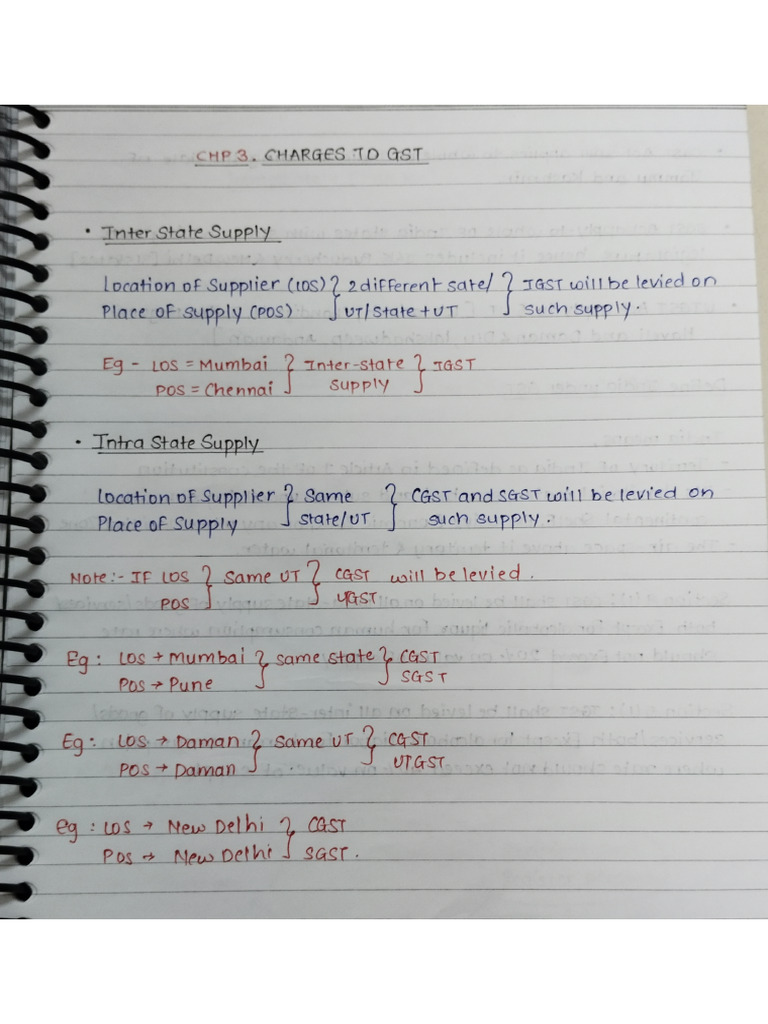 CHP 3. CHARGES TO GST
• Inter State Supply
Location of Supplier (LOS) } 2 different sate/ } IGST will be levied on
Place of supply (POS) } UT/State + UT } such supply.
Eg - LOS = Mumbai } Inter-state } IGST
POS = Chennai } supply }
• Intra State Supply
Location of Supplier } Same } CGST and SGST will be levied on
Place of Supply } state/UT } such supply.
Note:- IF LOS } Same UT } CGST will be levied.
POS } } UTGST
Eg: LOS → Mumbai } same state } CGST
POS → Pune } } SGST
Eg: LOS → Daman } Same UT } CGST
POS → Daman } } UTGST
eg: LOS → New Delhi } CGST
POS → New Delhi } SGST.